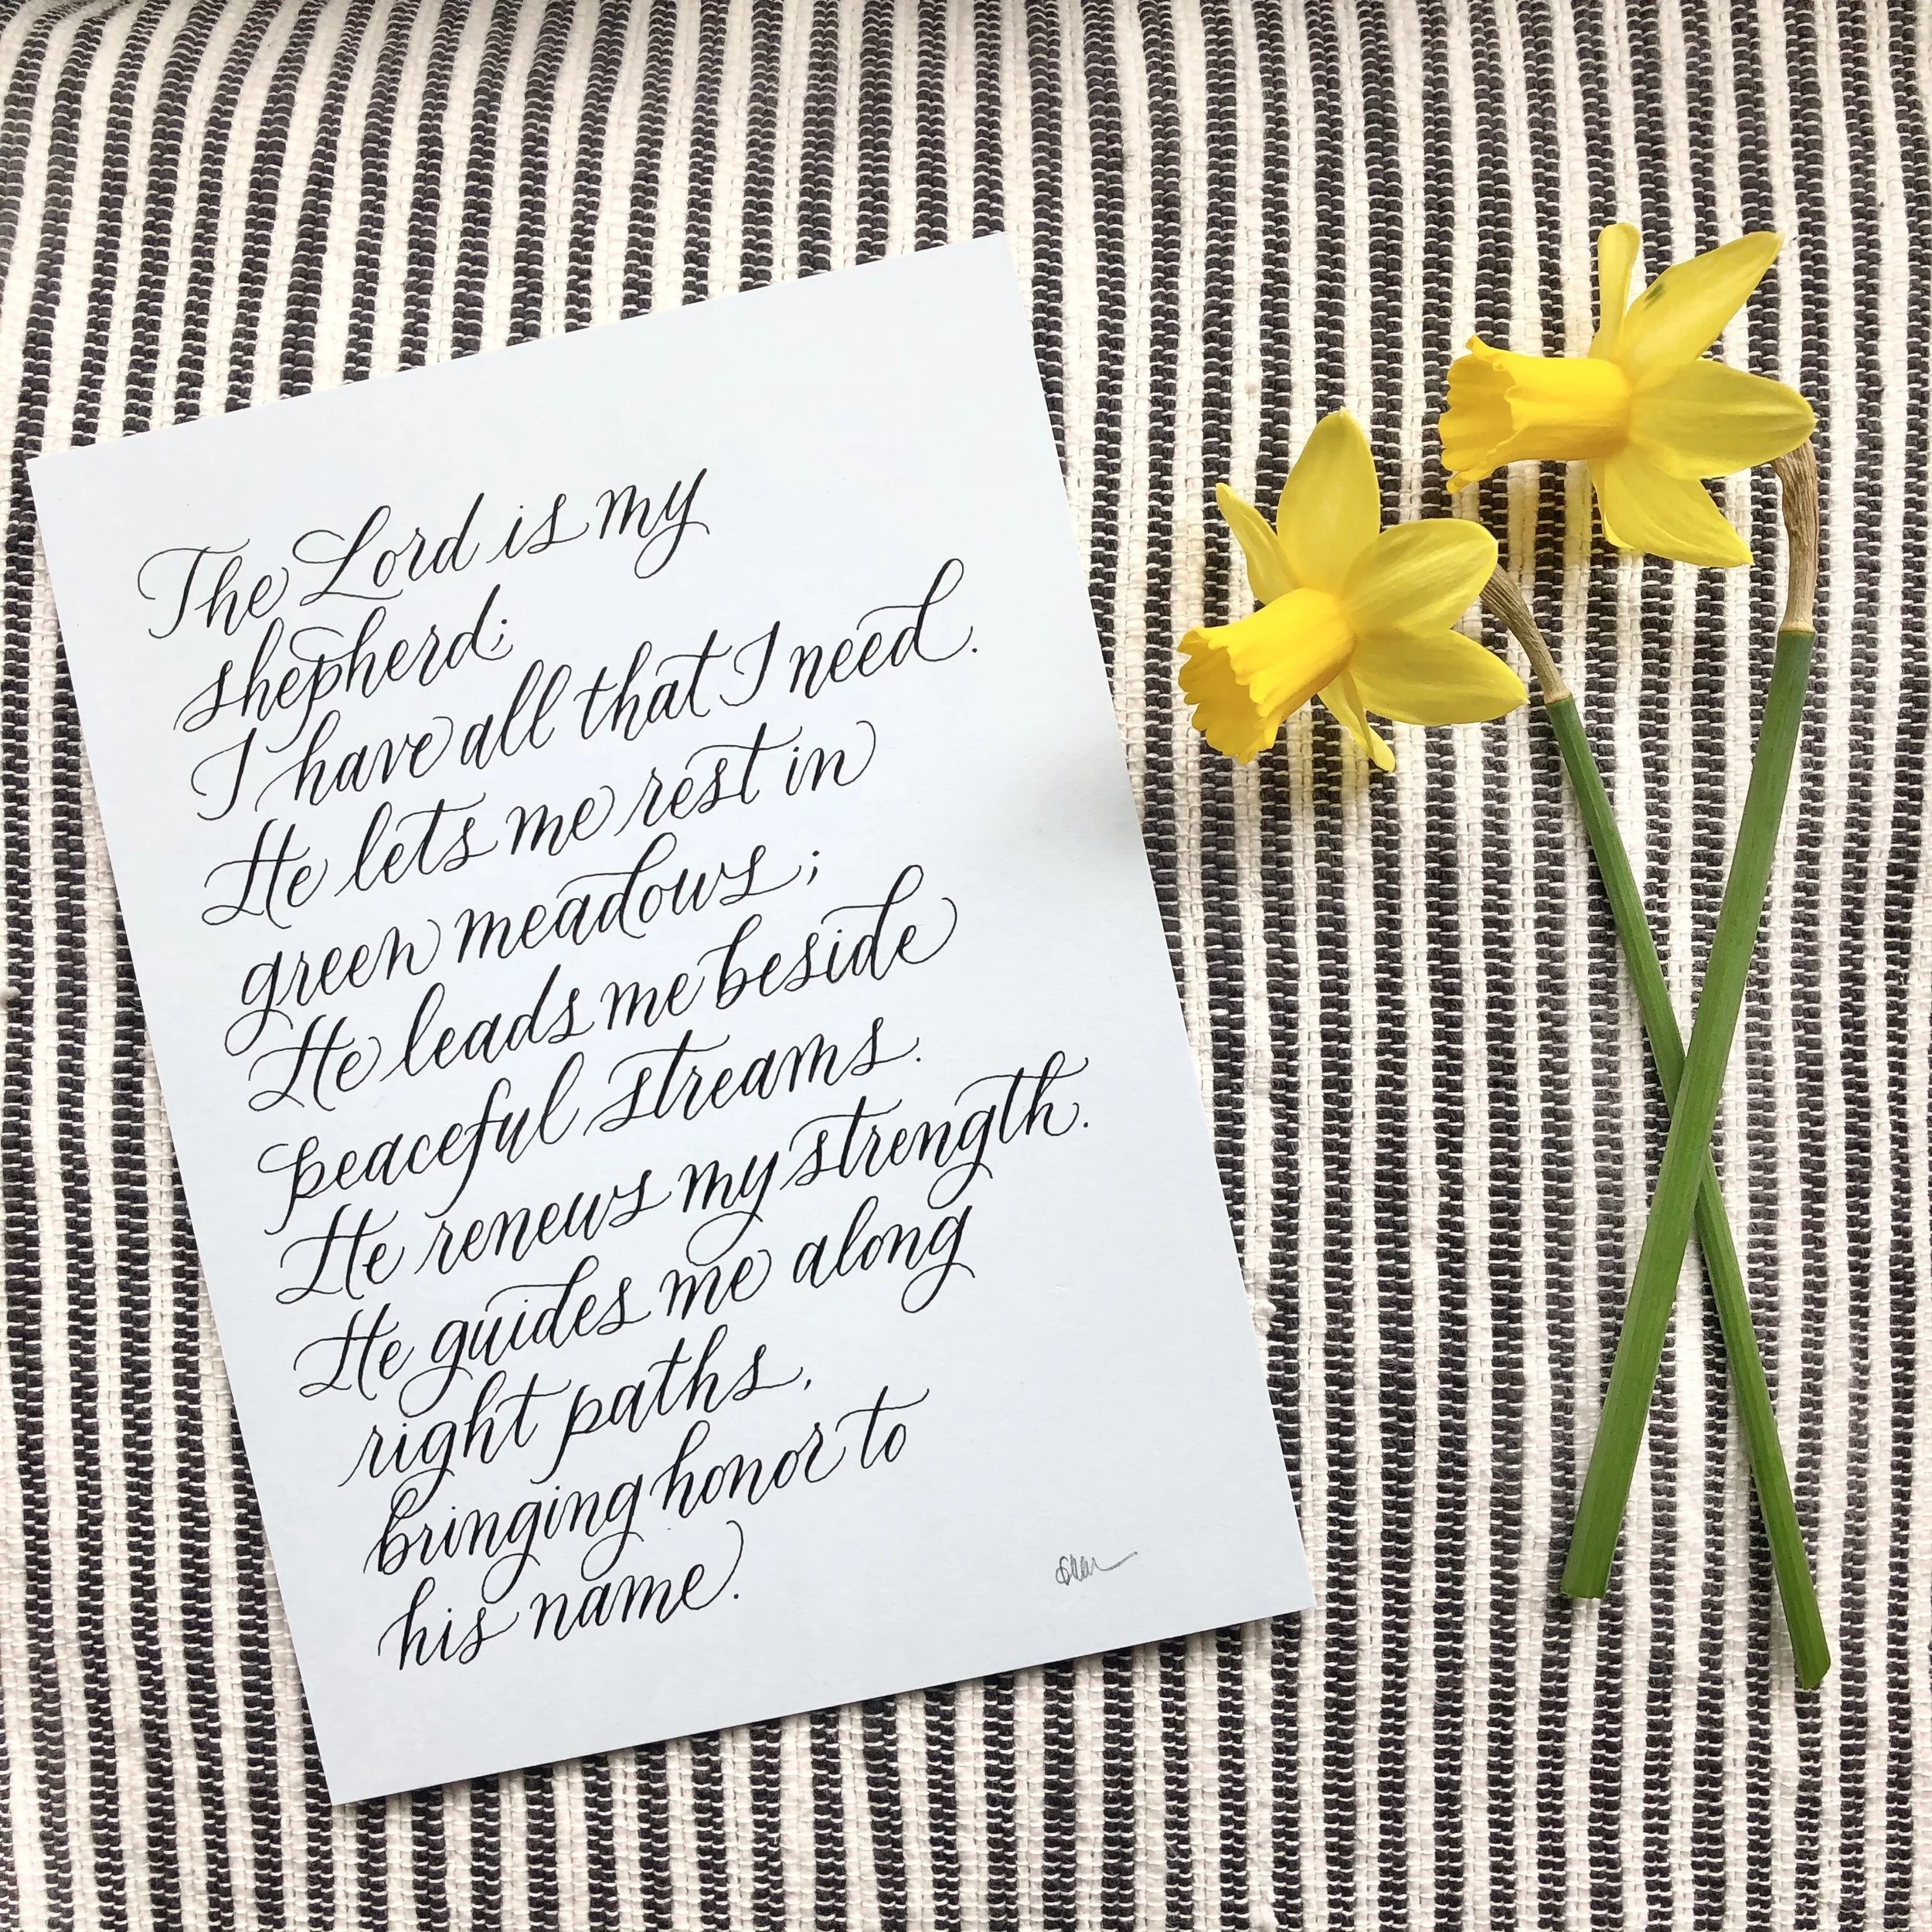 The Lord is my
shepherd;
I have all that I need.
He lets me rest in
green meadows;
He leads me beside
peaceful streams.
He renews my strength.
He guides me along
right paths,
bringing honor to
his name.